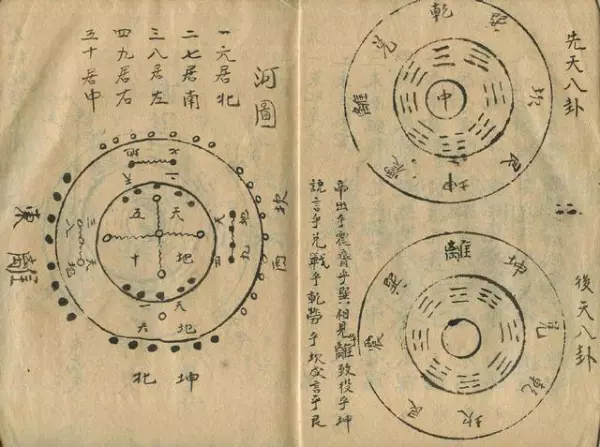 先天八卦
乾
兑
離
坤
艮
坎
中
後天八卦
離
坤
兑
乾
坎
艮
震
巽
帝出乎震齊乎巽相見乎離致役乎坤
説言乎兑戰乎乾勞乎坎成言乎艮
河圖
一六居北
二七居南
三八居左
四九居右
五十居中
坎
西
東
離
天
五
地
十
天一
地六
坤
北